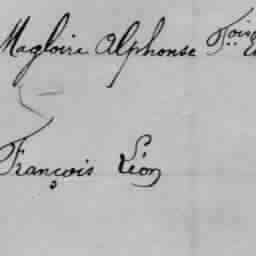 Magloire Alphonse
François Léon